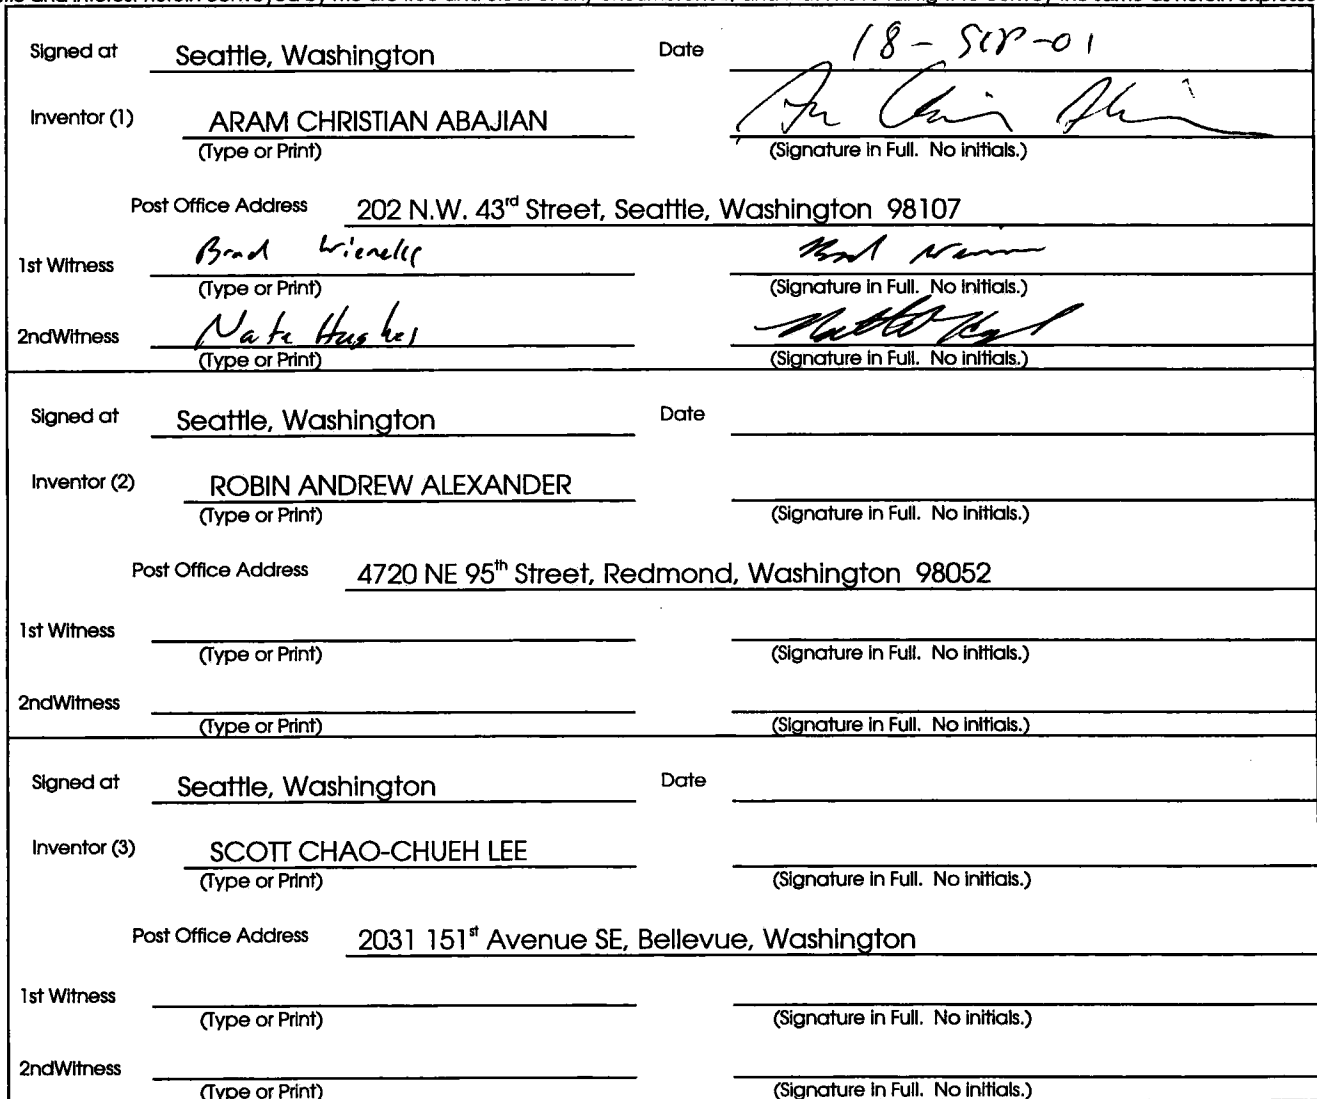 Signed at Seattle, Washington Date 18-SEP-01
Inventor (1) ARAM CHRISTIAN ABAJIAN
(Type or Print) (Signature in Full. No initials.)
Post Office Address 202 N.W. 43rd Street, Seattle, Washington 98107
1st Witness Brad
(Type or Print) (Signature in Full. No initials.)
2ndWitness Nate Hughes
(Type or Print) (Signature in Full. No initials.)
Signed at Seattle, Washington Date
Inventor (2) ROBIN ANDREW ALEXANDER
(Type or Print) (Signature in Full. No initials.)
Post Office Address 4720 NE 95th Street, Redmond, Washington 98052
1st Witness
(Type or Print) (Signature in Full. No initials.)
2ndWitness
(Type or Print) (Signature in Full. No initials.)
Signed at Seattle, Washington Date
Inventor (3) SCOTT CHAO-CHUEH LEE
(Type or Print) (Signature in Full. No initials.)
Post Office Address 2031 151st Avenue SE, Bellevue, Washington
1st Witness
(Type or Print) (Signature in Full. No initials.)
2ndWitness
(Type or Print) (Signature in Full. No initials.)